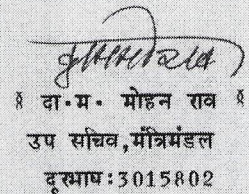 ( दा॰म॰ मोहन राव )
उप सचिव,मंत्रिमंडल
दूरभाष:3015802